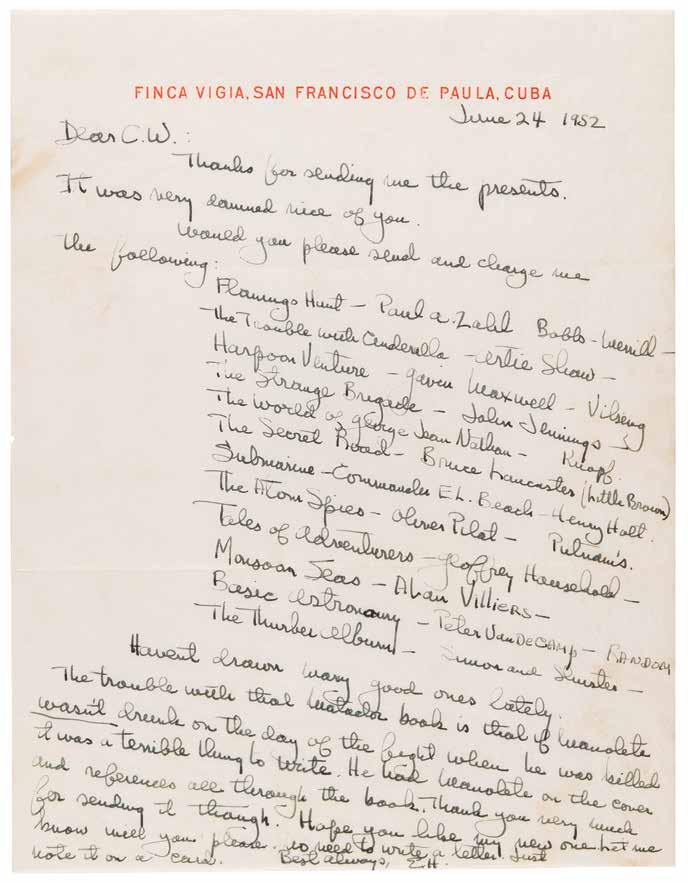 FINCA VIGIA, SAN FRANCISCO DE PAULA, CUBA
June 24 1952
Dear C.W.:
Thanks for sending me the presents.
It was very damned nice of you.
Would you please send and charge me
the following:
Flamingo Hunt - Paul A. Zahl Bobbs-Merrill -
The Trouble with Cinderella - Artie Shaw -
Harpoon Venture - Gavin Maxwell - Viking
The Strange Brigade - John Jennings
The World of George Jean Nathan - Knopf.
The Secret Road - Bruce Lancaster (Little Brown)
Submarine - Commander E.L. Beach - Henry Holt.
The Atom Spies - Oliver Pilat - Putnam's.
Tales of Adventurers - Geoffrey Household -
Monsoon Seas - Alan VILLIERS -
Basic Astronomy - Peter VanDeCAMP - RANDOM
The Thurber Album - Simon and Shuster -
Havent drawn many good ones lately.
The trouble with that Matador book is that if Manolete
wasn't drunk on the day of the fight when he was killed
it was a terrible thing to write. He had Manolete on the cover
and references all through the book. Thank you very much
for sending it though. Hope you like my new one. Let me
know will you please. No need to write a letter. Just
note it on a card. Best always, E.H.